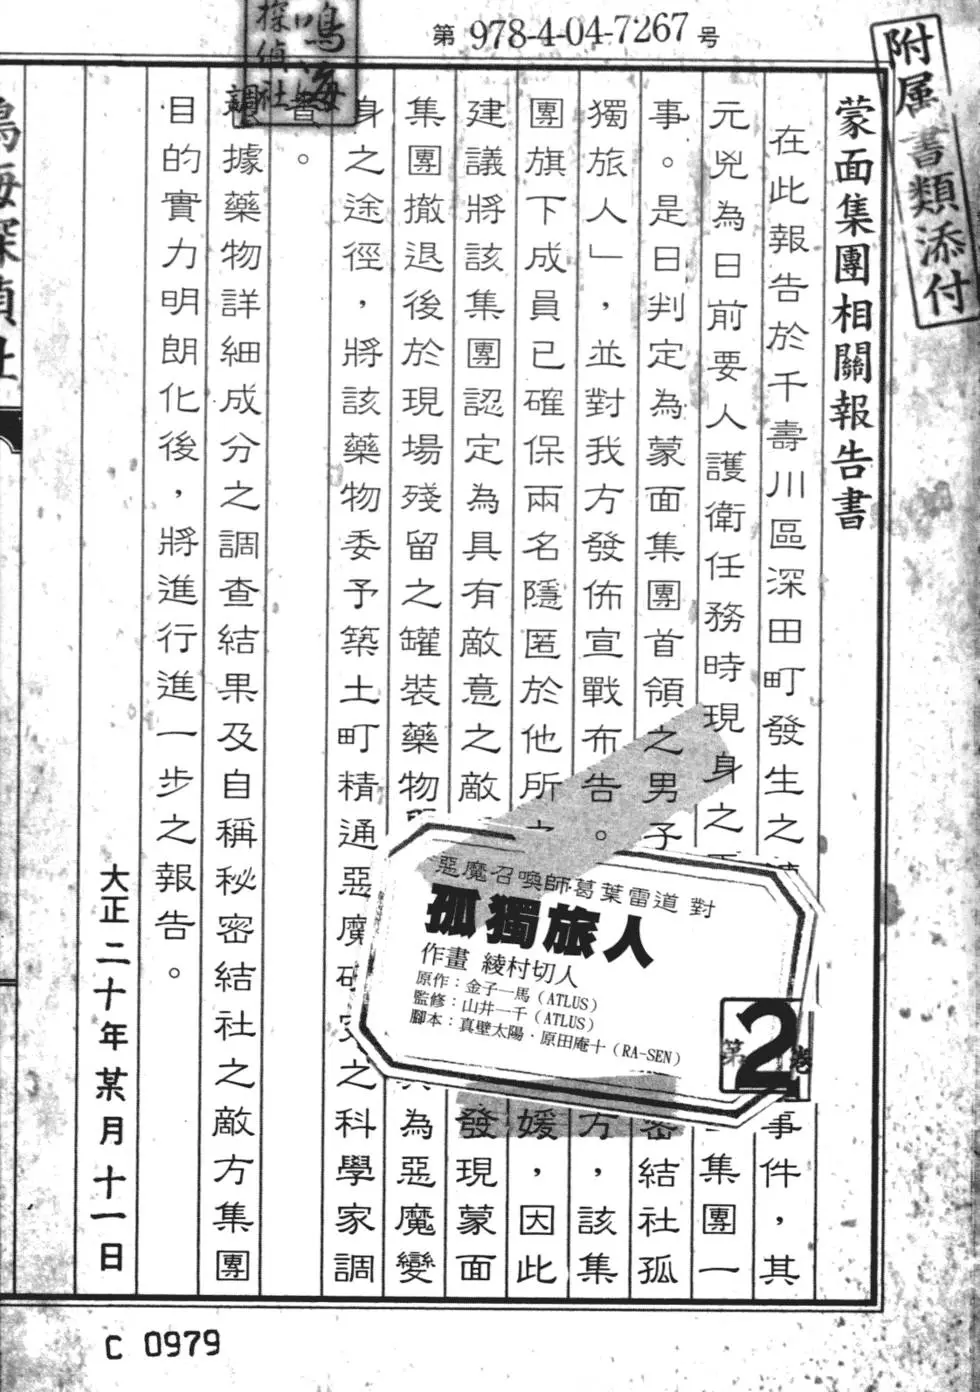 第 978-4-04-7267 号
附属書類添付
鳴海
探偵社
蒙面集團相關報告書
在此報告於千壽川區深田町發生之
事件，其
元兇為日前要人護衛任務時現身之
集團一
事。是日判定為蒙面集團首領之男子
密結社孤
獨旅人」，並對我方發佈宣戰布告。
方，該集
團旗下成員已確保兩名隱匿於他所之
媛，因此
建議將該集團認定為具有敵意之敵
發現蒙面
集團撤退後於現場殘留之罐裝藥物
為惡魔變
身之途徑，將該藥物委予築土町精通惡魔研究之科學家調
查。
根據藥物詳細成分之調查結果及自稱秘密結社之敵方集團
目的實力明朗化後，將進行進一步之報告。
大正二十年某月十一日
鳴海探偵社
惡魔召喚師葛葉雷道 對
孤獨旅人
作畫 綾村切人
原作：金子一馬（ATLUS）
監修：山井一千（ATLUS）
腳本：真壁太陽・原田庵十（RA-SEN）
第2卷
C 0979